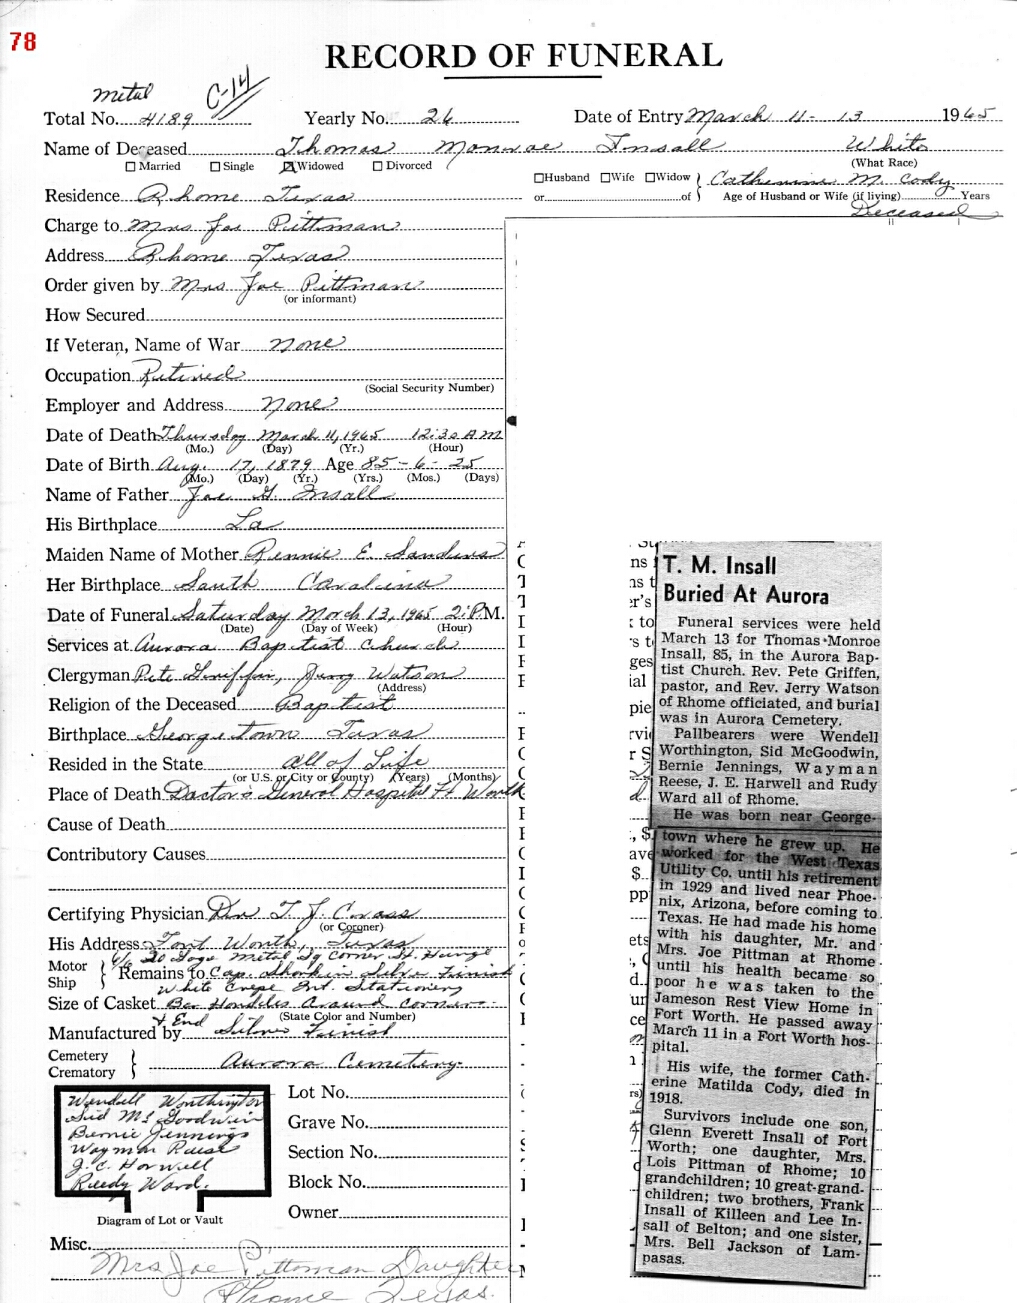 78
RECORD OF FUNERAL
Metal C-14
Total No. 4189 Yearly No. 26 Date of Entry March 11-13 1965
Name of Deceased Thomas Monroe Insall White
Married Single Widowed Divorced (What Race)
Husband Wife Widow Catherine M. Cody
Residence Rhome Texas or of Age of Husband or Wife (if living) Years
Deceased
Charge to Mrs Joe Pittman
Address Rhome Texas
Order given by Mrs Joe Pittman
(or informant)
How Secured
If Veteran, Name of War None
Occupation Retired
(Social Security Number)
Employer and Address None
Date of Death Thursday March 11, 1965 12:30 A M
(Mo.) (Day) (Yr.) (Hour)
Date of Birth Aug. 17, 1879 Age 85-6-25
(Mo.) (Day) (Yr.) (Yrs.) (Mos.) (Days)
Name of Father Joe G. Insall
His Birthplace La
Maiden Name of Mother Rennie E. Sanders
Her Birthplace South Carolina
Date of Funeral Saturday March 13, 1965 2:P.M.
(Date) (Day of Week) (Hour)
Services at Aurora Baptist Church
Clergyman Pete Griffin, Jerry Watson
(Address)
Religion of the Deceased Baptist
Birthplace Georgetown Texas
Resided in the State all of Life
(or U.S. or City or County) (Years) (Months)
Place of Death Doctor's General Hospital Ft Worth
Cause of Death
Contributory Causes
Certifying Physician Dr T. J. Cross
(or Coroner)
His Address Fort Worth, Texas
6/6 20 Gage Metal Sq Corner
Motor Ship Remains to Cap. Silver Finish
White Crepe Int. Stationery
Size of Casket Bar Handles Around Corners
(State Color and Number)
& End
Manufactured by Silver Finish
Cemetery
Crematory Aurora Cemetery
Wendell Worthington
Sid McGoodwin
Bernie Jennings
Wayman Reese
J. C. Harwell
Rudy Ward.
Lot No.
Grave No.
Section No.
Block No.
Owner
Diagram of Lot or Vault
Misc.
Mrs Joe Pittman Daughter
Rhome Texas.
T. M. Insall
Buried At Aurora
Funeral services were held
March 13 for Thomas Monroe
Insall, 85, in the Aurora Bap-
tist Church. Rev. Pete Griffen,
pastor, and Rev. Jerry Watson
of Rhome officiated, and burial
was in Aurora Cemetery.
Pallbearers were Wendell
Worthington, Sid McGoodwin,
Bernie Jennings, Wayman
Reese, J. E. Harwell and Rudy
Ward all of Rhome.
He was born near George-
town where he grew up. He
worked for the West Texas
Utility Co. until his retirement
in 1929 and lived near Phoe-
nix, Arizona, before coming to
Texas. He had made his home
with his daughter, Mr. and
Mrs. Joe Pittman at Rhome
until his health became so
poor he was taken to the
Jameson Rest View Home in
Fort Worth. He passed away
March 11 in a Fort Worth hos-
pital.
His wife, the former Cath-
erine Matilda Cody, died in
1918.
Survivors include one son,
Glenn Everett Insall of Fort
Worth; one daughter, Mrs.
Lois Pittman of Rhome; 10
grandchildren; 10 great-grand-
children; two brothers, Frank
Insall of Killeen and Lee In-
sall of Belton; and one sister,
Mrs. Bell Jackson of Lam-
pasas.